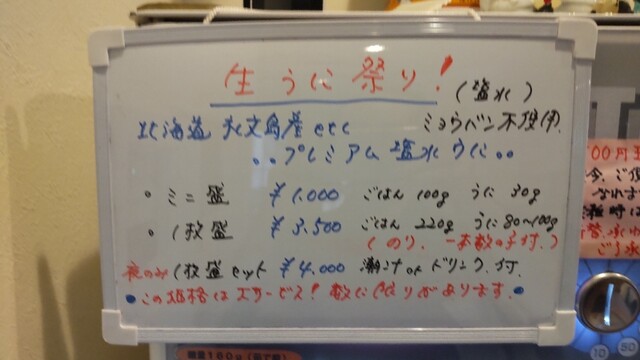 生うに祭り!
(塩水)
北海道 礼文島産 etc ミョウバン不使用.
..プレミアム塩水うに..
・ミニ盛 ¥1.000 ごはん 100g うに 30g
・1枚盛 ¥3.500 ごはん 220g うに80~100g
(のり、一本数の子付.)
夜のみ1枚盛セット ¥4.000 潮汁orドリンク.付.
●この価格は大サービス!数に限りがあります.●
00円玉
今、ご使
なれま
難時に
ご了承
10 50